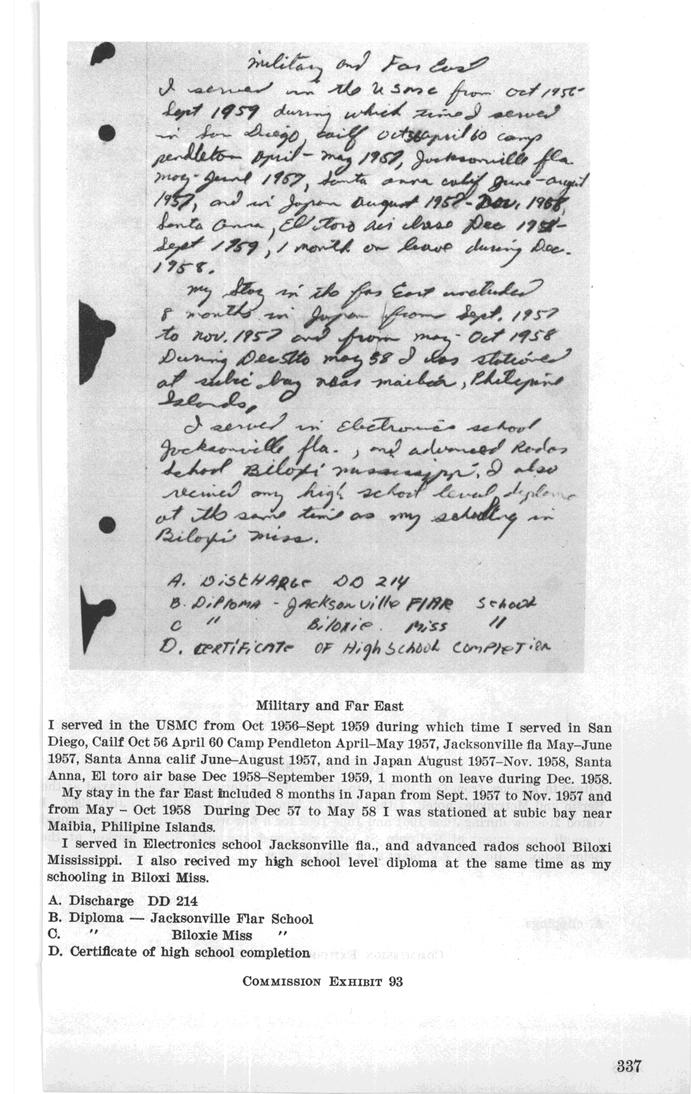 Military and Far East
I served in the USMC from Oct 1956-
Sept 1959 during which time I served
in San Diego, cailf Oct 56 April 60 camp
pendleton April - may 1957, Jacksonville fla
may - June 1957, Santa anna calif June - August
1957, and in Japan August 1957 - Nov. 1958,
Santa Anna, El Toro air base Dec 1958-
Sept 1959, 1 month on leave during Dec.
1958.
my Stay in the far East included
8 months in Japan from Sept. 1957
to nov. 1957 and from may - Oct 1958
During Dec57to may 58 I was stationed
at subic bay near , Philipine
Islands,
I served in Electronics school
Jacksonville fla. , and advanced Rados
School Biloxi mississippi, I also
recived my high school level diploma
at the same time as my schooling in
Biloxi miss.
A. DiSCHARGE DD 214
B. DiPLOMA - JAcksonville FlAR School
C " Biloxie. Miss "
D. CERTiFiCATE OF High School COMPlETION
Military and Far East
I served in the USMC from Oct 1956–Sept 1959 during which time I served in San
Diego, Cailf Oct 56 April 60 Camp Pendleton April–May 1957, Jacksonville fla May–June
1957, Santa Anna calif June–August 1957, and in Japan August 1957–Nov. 1958, Santa
Anna, El toro air base Dec 1958–September 1959, 1 month on leave during Dec. 1958.
My stay in the far East included 8 months in Japan from Sept. 1957 to Nov. 1957 and
from May – Oct 1958 During Dec 57 to May 58 I was stationed at subic bay near
Maibia, Philipine Islands.
I served in Electronics school Jacksonville fla., and advanced rados school Biloxi
Mississippi. I also recived my high school level diploma at the same time as my
schooling in Biloxi Miss.
A. Discharge DD 214
B. Diploma — Jacksonville Flar School
C. " Biloxie Miss "
D. Certificate of high school completion
COMMISSION EXHIBIT 93
337